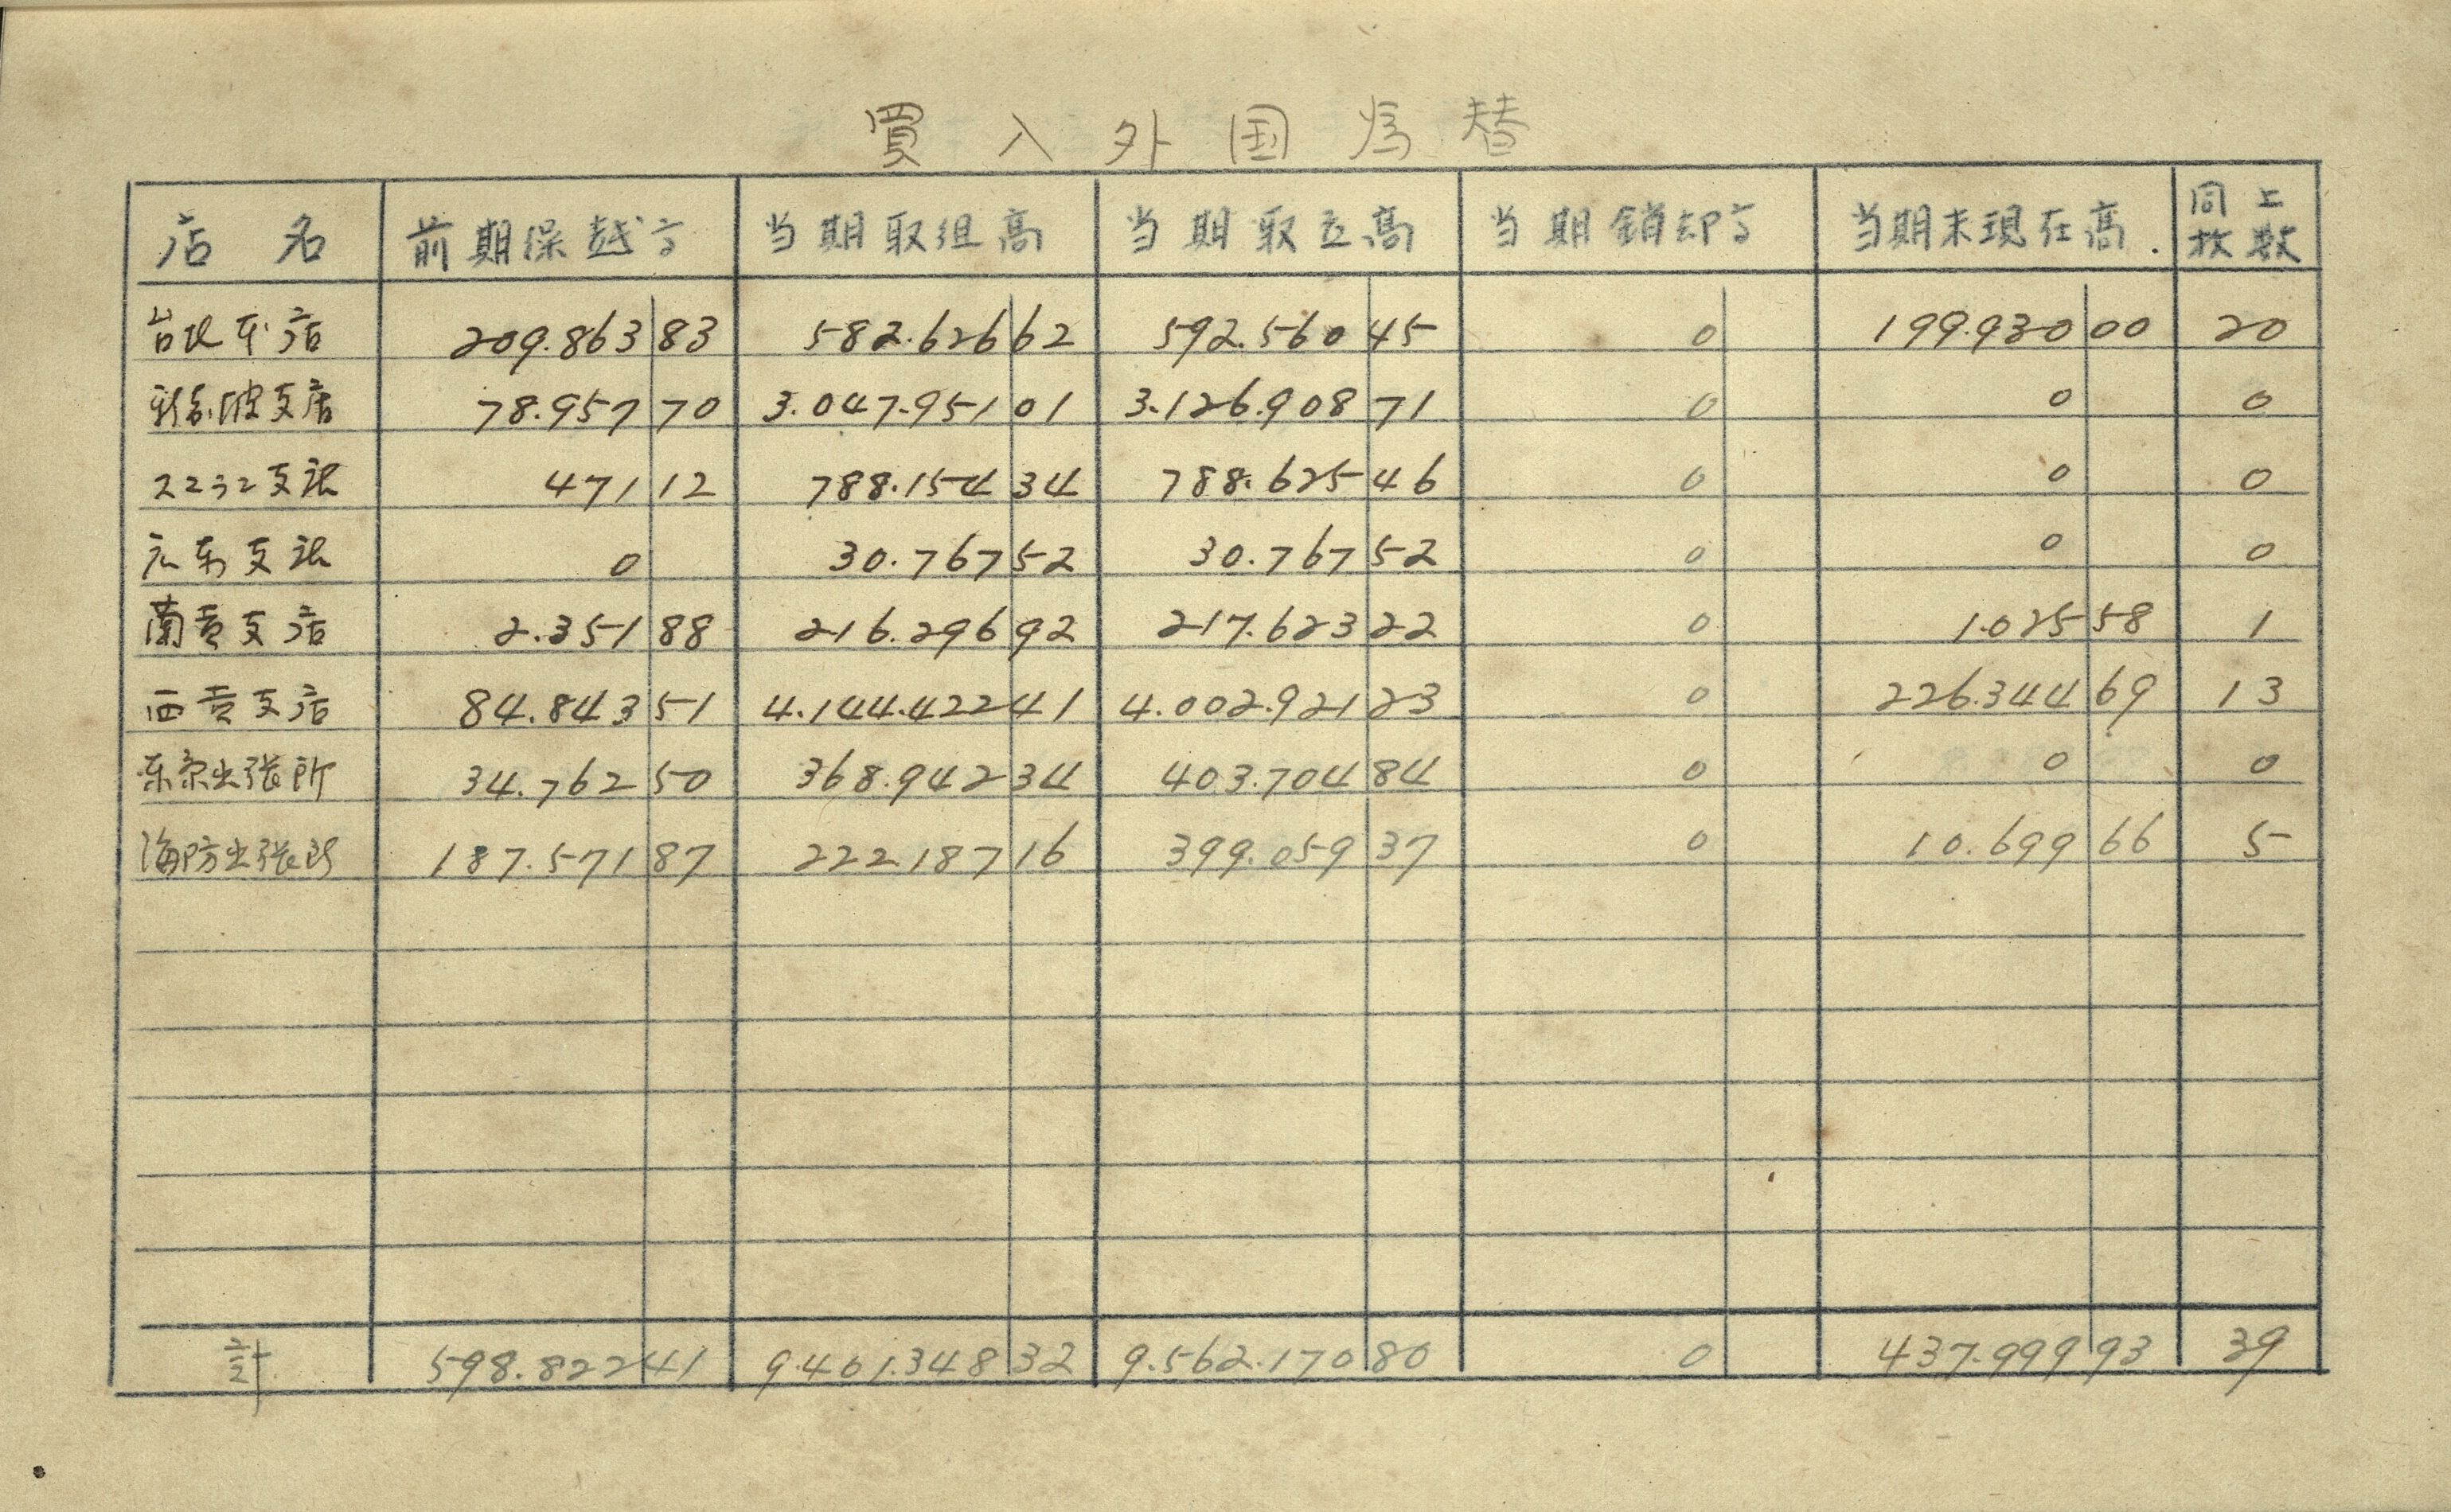 買入外国為替
店名 前期繰越高 当期取組高 当期取立高 当期銷却高 当期末現在高. 同上枚数
台北本店 209.863 83 582.626 62 592.560 45 0 199.930 00 20
新嘉坡支店 78.957 70 3.047.951 01 3.126.908 71 0 0 0
支店 471 12 788.154 34 788.625 46 0 0 0
広东支店 0 30.767 52 30.767 52 0 0 0
蘭貢支店 2.351 88 216.296 92 217.623 22 0 1.025 58 1
西貢支店 84.843 51 4.144.422 41 4.002.921 23 0 226.344 69 13
东京出張所 34.762 50 368.942 34 403.704 84 0 0 0
海防出張所 187.571 87 222 187 16 399.059 37 0 10.699 66 5
計 598.822 41 9.401.348 32 9.562.170 80 0 437.999 93 39